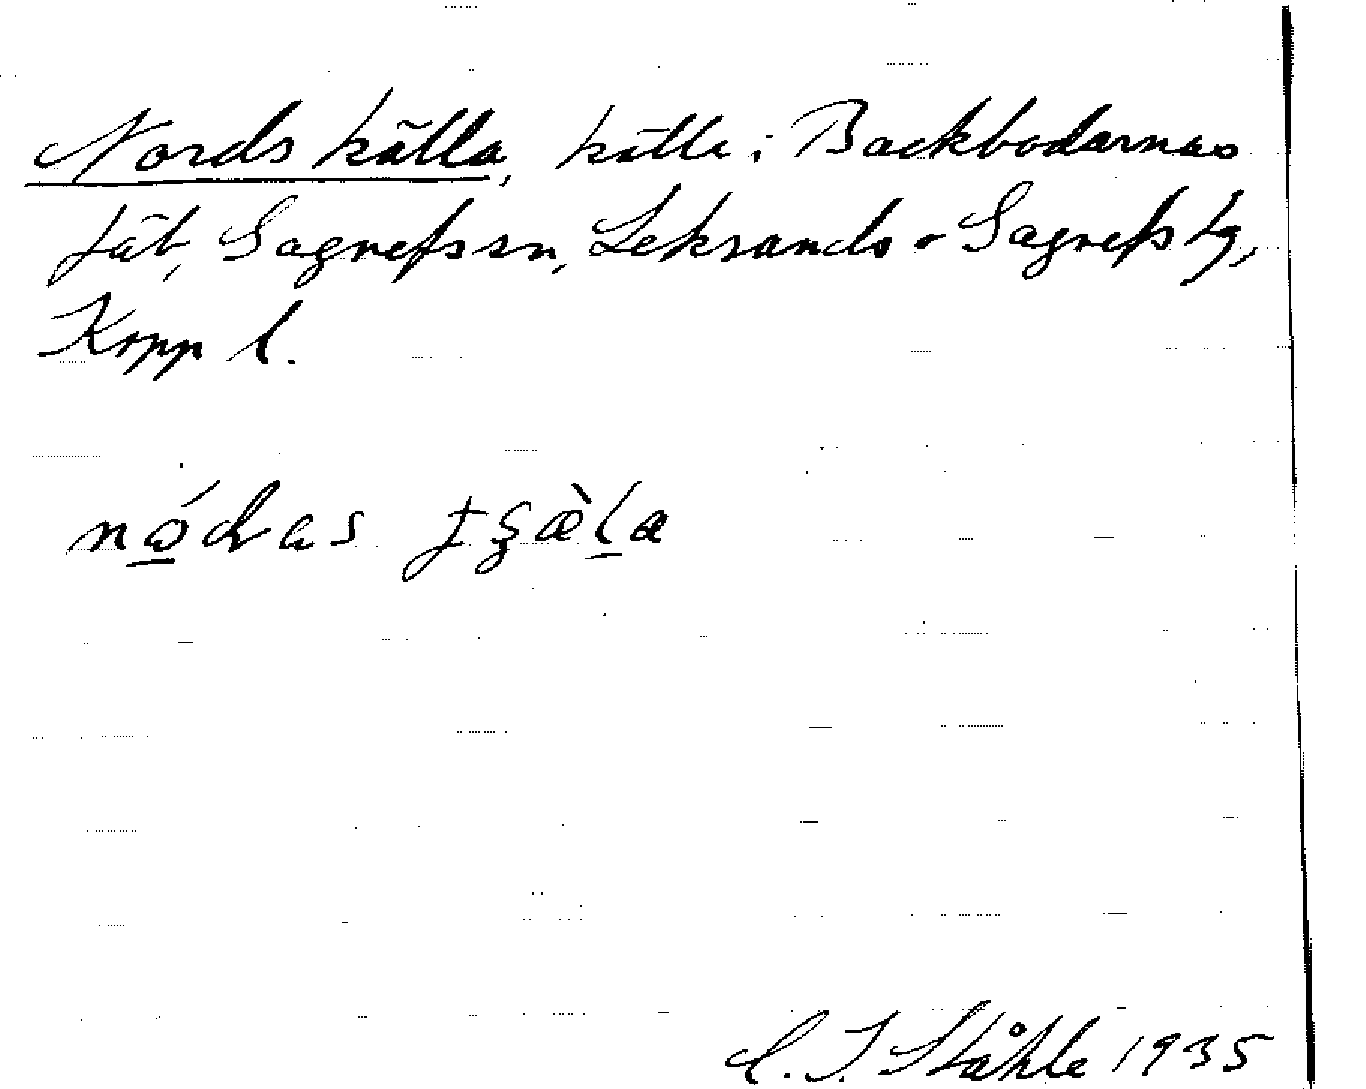 Nords källa, källa i Backbodarnas
fäb, Gagnefs sn, Leksands o Gagnefs tg,
Kopp l.
C. I. Ståhle 1935